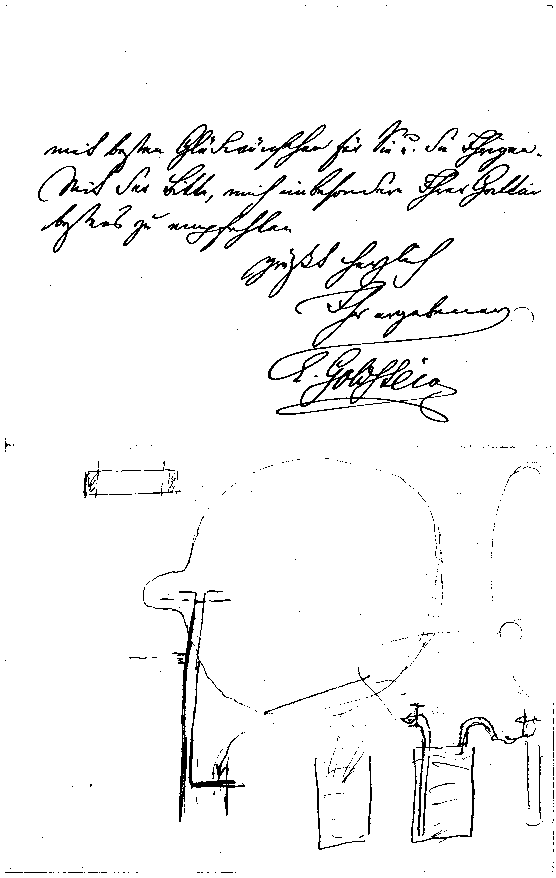 mit besten Glückwünschen für Sie u. die Ihrigen.
Mit der Bitte, mich insbesondere Ihrer Gattin
bestens zu empfehlen
grüßt herzlich
Ihr ergebener
E. Goldstein